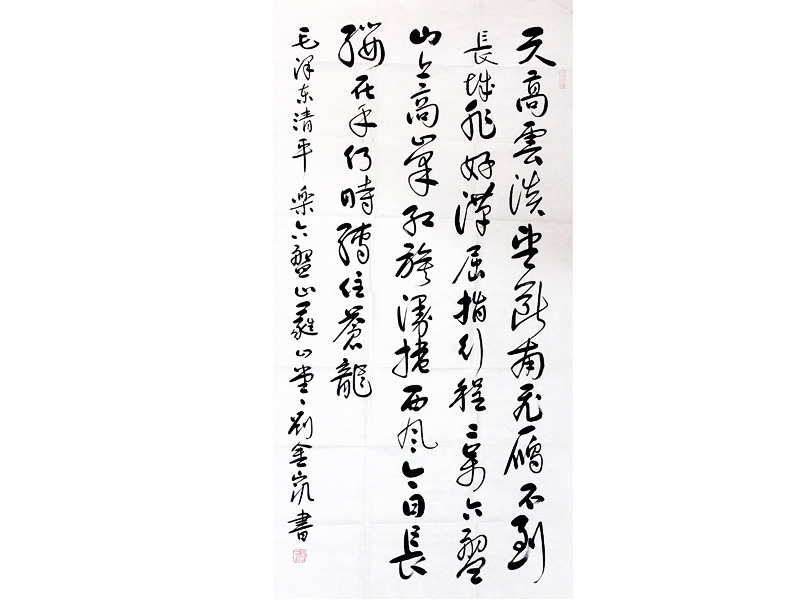 天高雲淡望斷南飛雁不到
長城非好漢屈指行程二萬六盤
山上高峯紅旗漫捲西風今日長
纓在手何時縛住蒼龍
毛泽东清平乐六盤山 義山堂主刘金凯書